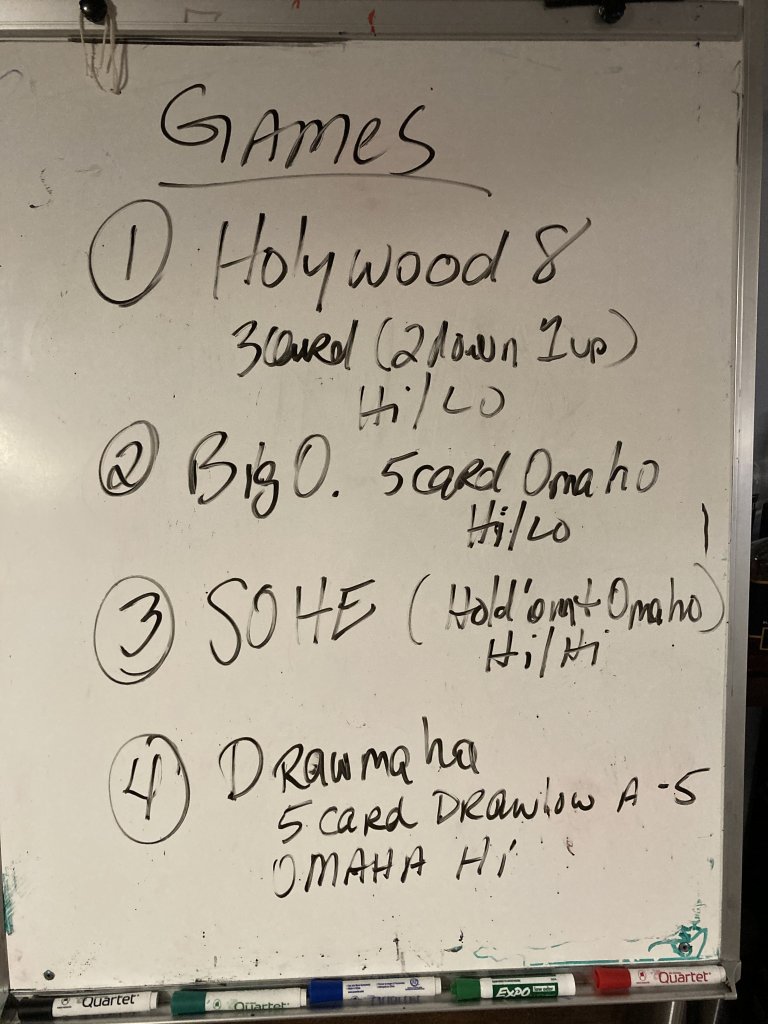 GAMES
① Holywood 8
3 Card (2 down 1 up)
Hi/LO
② Big O. 5 card Omaho
Hi/LO
③ SOHE (Hold'om + Omaho)
Hi/Hi
④ DRawmaha
5 CARD DRAW low A-5
OMAHA Hi
Quartet
Quartet
EXPO
Quartet